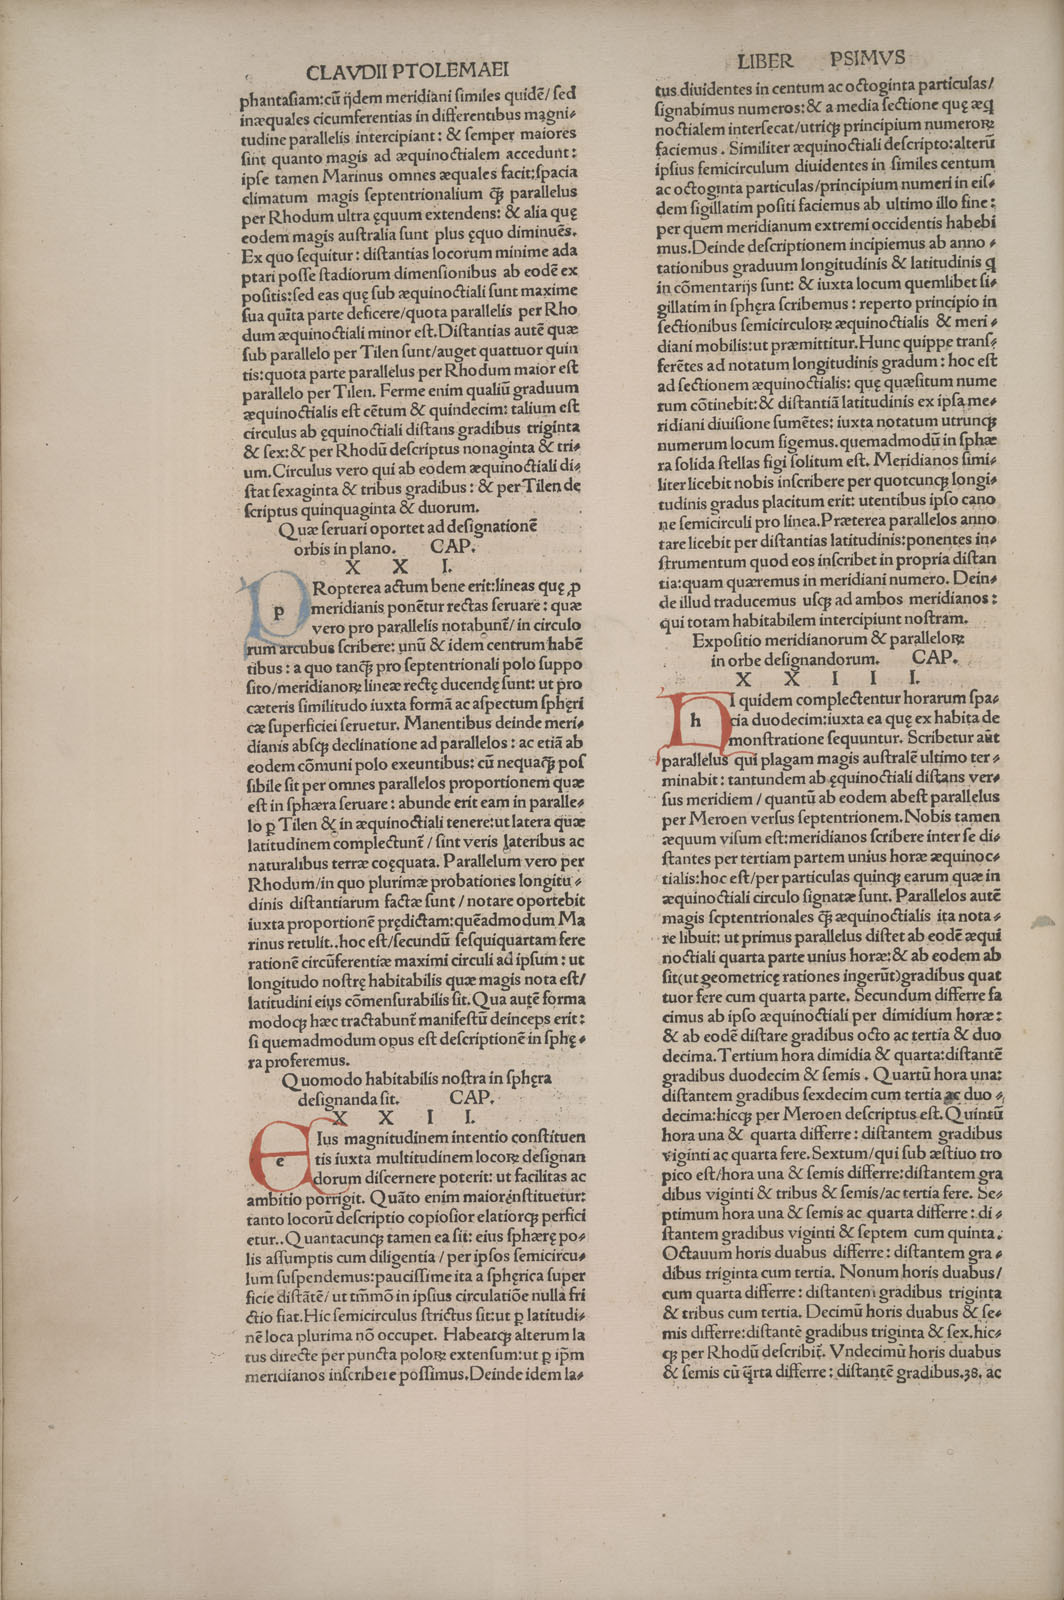 CLAVDII PTOLEMAEI
phantasiam:cū ijdem meridiani similes quidē/ sed
inæquales cicumferentias in differentibus magni-
tudine parallelis intercipiant: & semper maiores
sint quanto magis ad æquinoctialem accedunt:
ipse tamen Marinus omnes æquales facit:spacia
climatum magis septentrionalium qꝫ parallelus
per Rhodum ultra ęquum extendens: & alia quę
eodem magis australia sunt plus ęquo diminuēs.
Ex quo sequitur: distantias locorum minime ada
ptari posse stadiorum dimensionibus ab eodē ex
positis:sed eas quę sub æquinoctiali sunt maxime
sua quīta parte deficere/quota parallelis per Rho
dum æquinoctiali minor est.Distantias autē quæ
sub parallelo per Tilen sunt/auget quattuor quin
tis:quota parte parallelus per Rhodum maior est
parallelo per Tilen. Ferme enim qualiū graduum
æquinoctialis est cētum & quindecim: talium est
circulus ab ęquinoctiali distans gradibus triginta
& sex:& per Rhodū descriptus nonaginta & tri-
um.Circulus vero qui ab eodem æquinoctiali di-
stat sexaginta & tribus gradibus: & per Tilen de
scriptus quinquaginta & duorum.
Quæ seruari oportet ad designationē
orbis in plano. CAP.
X X I.
p
Ropterea actum bene erit:lineas quę ꝓ
meridianis ponētur rectas seruare: quæ
vero pro parallelis notabunt̄/ in circulo
rum arcubus scribere: unū & idem centrum habē
tibus: a quo tanqꝫ pro septentrionali polo suppo
sito/meridianoꝝ lineæ rectę ducendę sunt: ut pro
cæteris similitudo iuxta formā ac aspectum sphęri
cæ superficiei seruetur. Manentibus deinde meri-
dianis absqꝫ declinatione ad parallelos: ac etiā ab
eodem cōmuni polo exeuntibus: cū nequaqꝫ pos
sibile sit per omnes parallelos proportionem quæ
est in sphæra seruare: abunde erit eam in paralle-
lo ꝑ Tilen & in æquinoctiali tenere:ut latera quæ
latitudinem complectunt̄/ sint veris lateribus ac
naturalibus terræ coęquata. Parallelum vero per
Rhodum/in quo plurimæ probationes longitu-
dinis distantiarum factæ sunt/ notare oportebit
iuxta proportionē prędictam:quēadmodum Ma
rinus retulit..hoc est/secundū sesquiquartam fere
rationē circūferentiæ maximi circuli ad ipsum: ut
longitudo nostrę habitabilis quæ magis nota est/
latitudini eius cōmensurabilis sit. Qua autē forma
modoqꝫ hæc tractabunt̄ manifestū deinceps erit:
si quemadmodum opus est descriptionē in sphę-
ra proferemus.
Quomodo habitabilis nostra in sphęra
designanda sit. CAP.
X X I I.
e
Ius magnitudinem intentio constituen
tis iuxta multitudinem locoꝝ designan
dorum discernere poterit: ut facilitas ac
ambitio porrigit. Quāto enim maior ēnstituetur:
tanto locorū descriptio copiosior elatiorqꝫ perfici
etur.. Quantacunqꝫ tamen ea sit: eius sphærę po-
lis assumptis cum diligentia/ per ipsos semicircu-
lum suspendemus:paucissime ita a spherica super
ficie distātē/ ut tm̄mō in ipsius circulatiōe nulla fri
ctio fiat. Hic semicirculus strictus sit:ut ꝑ latitudi-
nē loca plurima nō occupet. Habeatqꝫ alterum la
tus directe per puncta poloꝝ extensum:ut ꝑ ip̄m
meridianos inscribere possimus.Deinde idem la-
LIBER PSIMVS
tus diuidentes in centum ac octoginta particulas/
signabimus numeros:& a media sectione quę æq̄
noctialem intersecat/utriqꝫ principium numeroꝝ
faciemus. Similiter æquinoctiali descripto:alterū
ipsius femicirculum diuidentes in similes centum
ac octoginta particulas/principium numeri in eis-
dem sigillatim positi faciemus ab ultimo illo fine:
per quem meridianum extremi occidentis habebi
mus.Deinde descriptionem incipiemus ab anno-
tationibus graduum longitudinis & latitudinis q̄
in cōmentarijs sunt: & iuxta locum quemlibet si-
gillatim in sphęra scribemus: reperto principio in
sectionibus semicirculoꝝ æquinoctialis & meri-
diani mobilis:ut præmittitur.Hunc quippe transf
ferētes ad notatum longitudinis gradum: hoc est
ad sectionem æquinoctialis: quę quæsitum nume
rum cōtinebit:& distantiā latitudinis ex ipsa me-
ridiani diuisione sumētes: iuxta notatum utrunqꝫ
numerum locum figemus.quemadmodū in sphæ
ra solida stellas figi solitum est. Meridianos simi-
liter licebit nobis inscribere per quotcunqꝫ longi-
tudinis gradus placitum erit: utentibus ipso cano
ne semicirculi pro linea.Præterea parallelos anno
tare licebit per distantias latitudinis:ponentes in-
strumentum quod eos inscribet in propria distan
tia:quam quæremus in meridiani numero. Dein-
de illud traducemus usqꝫ ad ambos meridianos:
qui totam habitabilem intercipiunt nostram.
Expositio meridianorum & paralleloꝝ
in orbe designandorum. CAP.
X X I I I.
h
I quidem complectentur horarum spa-
cia duodecim:iuxta ea quę ex habita de
monstratione sequuntur. Scribetur aūt
parallelus qui plagam magis australē ultimo ter-
minabit: tantundem ab ęquinoctiali distans ver-
sus meridiem/ quantū ab eodem abest parallelus
per Meroen versus septentrionem.Nobis tamen
æquum visum est:meridianos scribere inter se di-
stantes per tertiam partem unius horæ æquinoc-
tialis:hoc est/per particulas quinqꝫ earum quæ in
æquinoctiali circulo signatæ sunt. Parallelos autē
magis septentrionales qꝫ æquinoctialis ita nota-
re libuit: ut primus parallelus distet ab eodē æqui
noctiali quarta parte unius horæ:& ab eodem ab
sit(ut geometricę rationes ingerūt)gradibus quat
tuor fere cum quarta parte. Secundum differre fa
cimus ab ipso æquinoctiali per dimidium horæ:
& ab eodē distare gradibus octo ac tertia & duo
decima.Tertium hora dimidia & quarta:distantē
gradibus duodecim & semis. Quartū hora una:
distantem gradibus sexdecim cum tertia ac duo-
decima:hicqꝫ per Meroen descriptus est.Quintū
hora una & quarta differre: distantem gradibus
viginti ac quarta fere.Sextum/qui sub æstiuo tro
pico est/hora una & semis differre:distantem gra
dibus viginti & tribus & semis/ac tertia fere. Se-
ptimum hora una & semis ac quarta differre: di-
stantem gradibus viginti & septem cum quinta.
Octauum horis duabus differre: distantem gra-
dibus triginta cum tertia. Nonum horis duabus/
cum quarta differre: distantem gradibus triginta
& tribus cum tertia. Decimū horis duabus & se-
mis differre:distantē gradibus triginta & sex.hic-
qꝫ per Rhodū describit̄. Vndecimū horis duabus
& semis cū q̄rta differre: distantē gradibus.38. ac